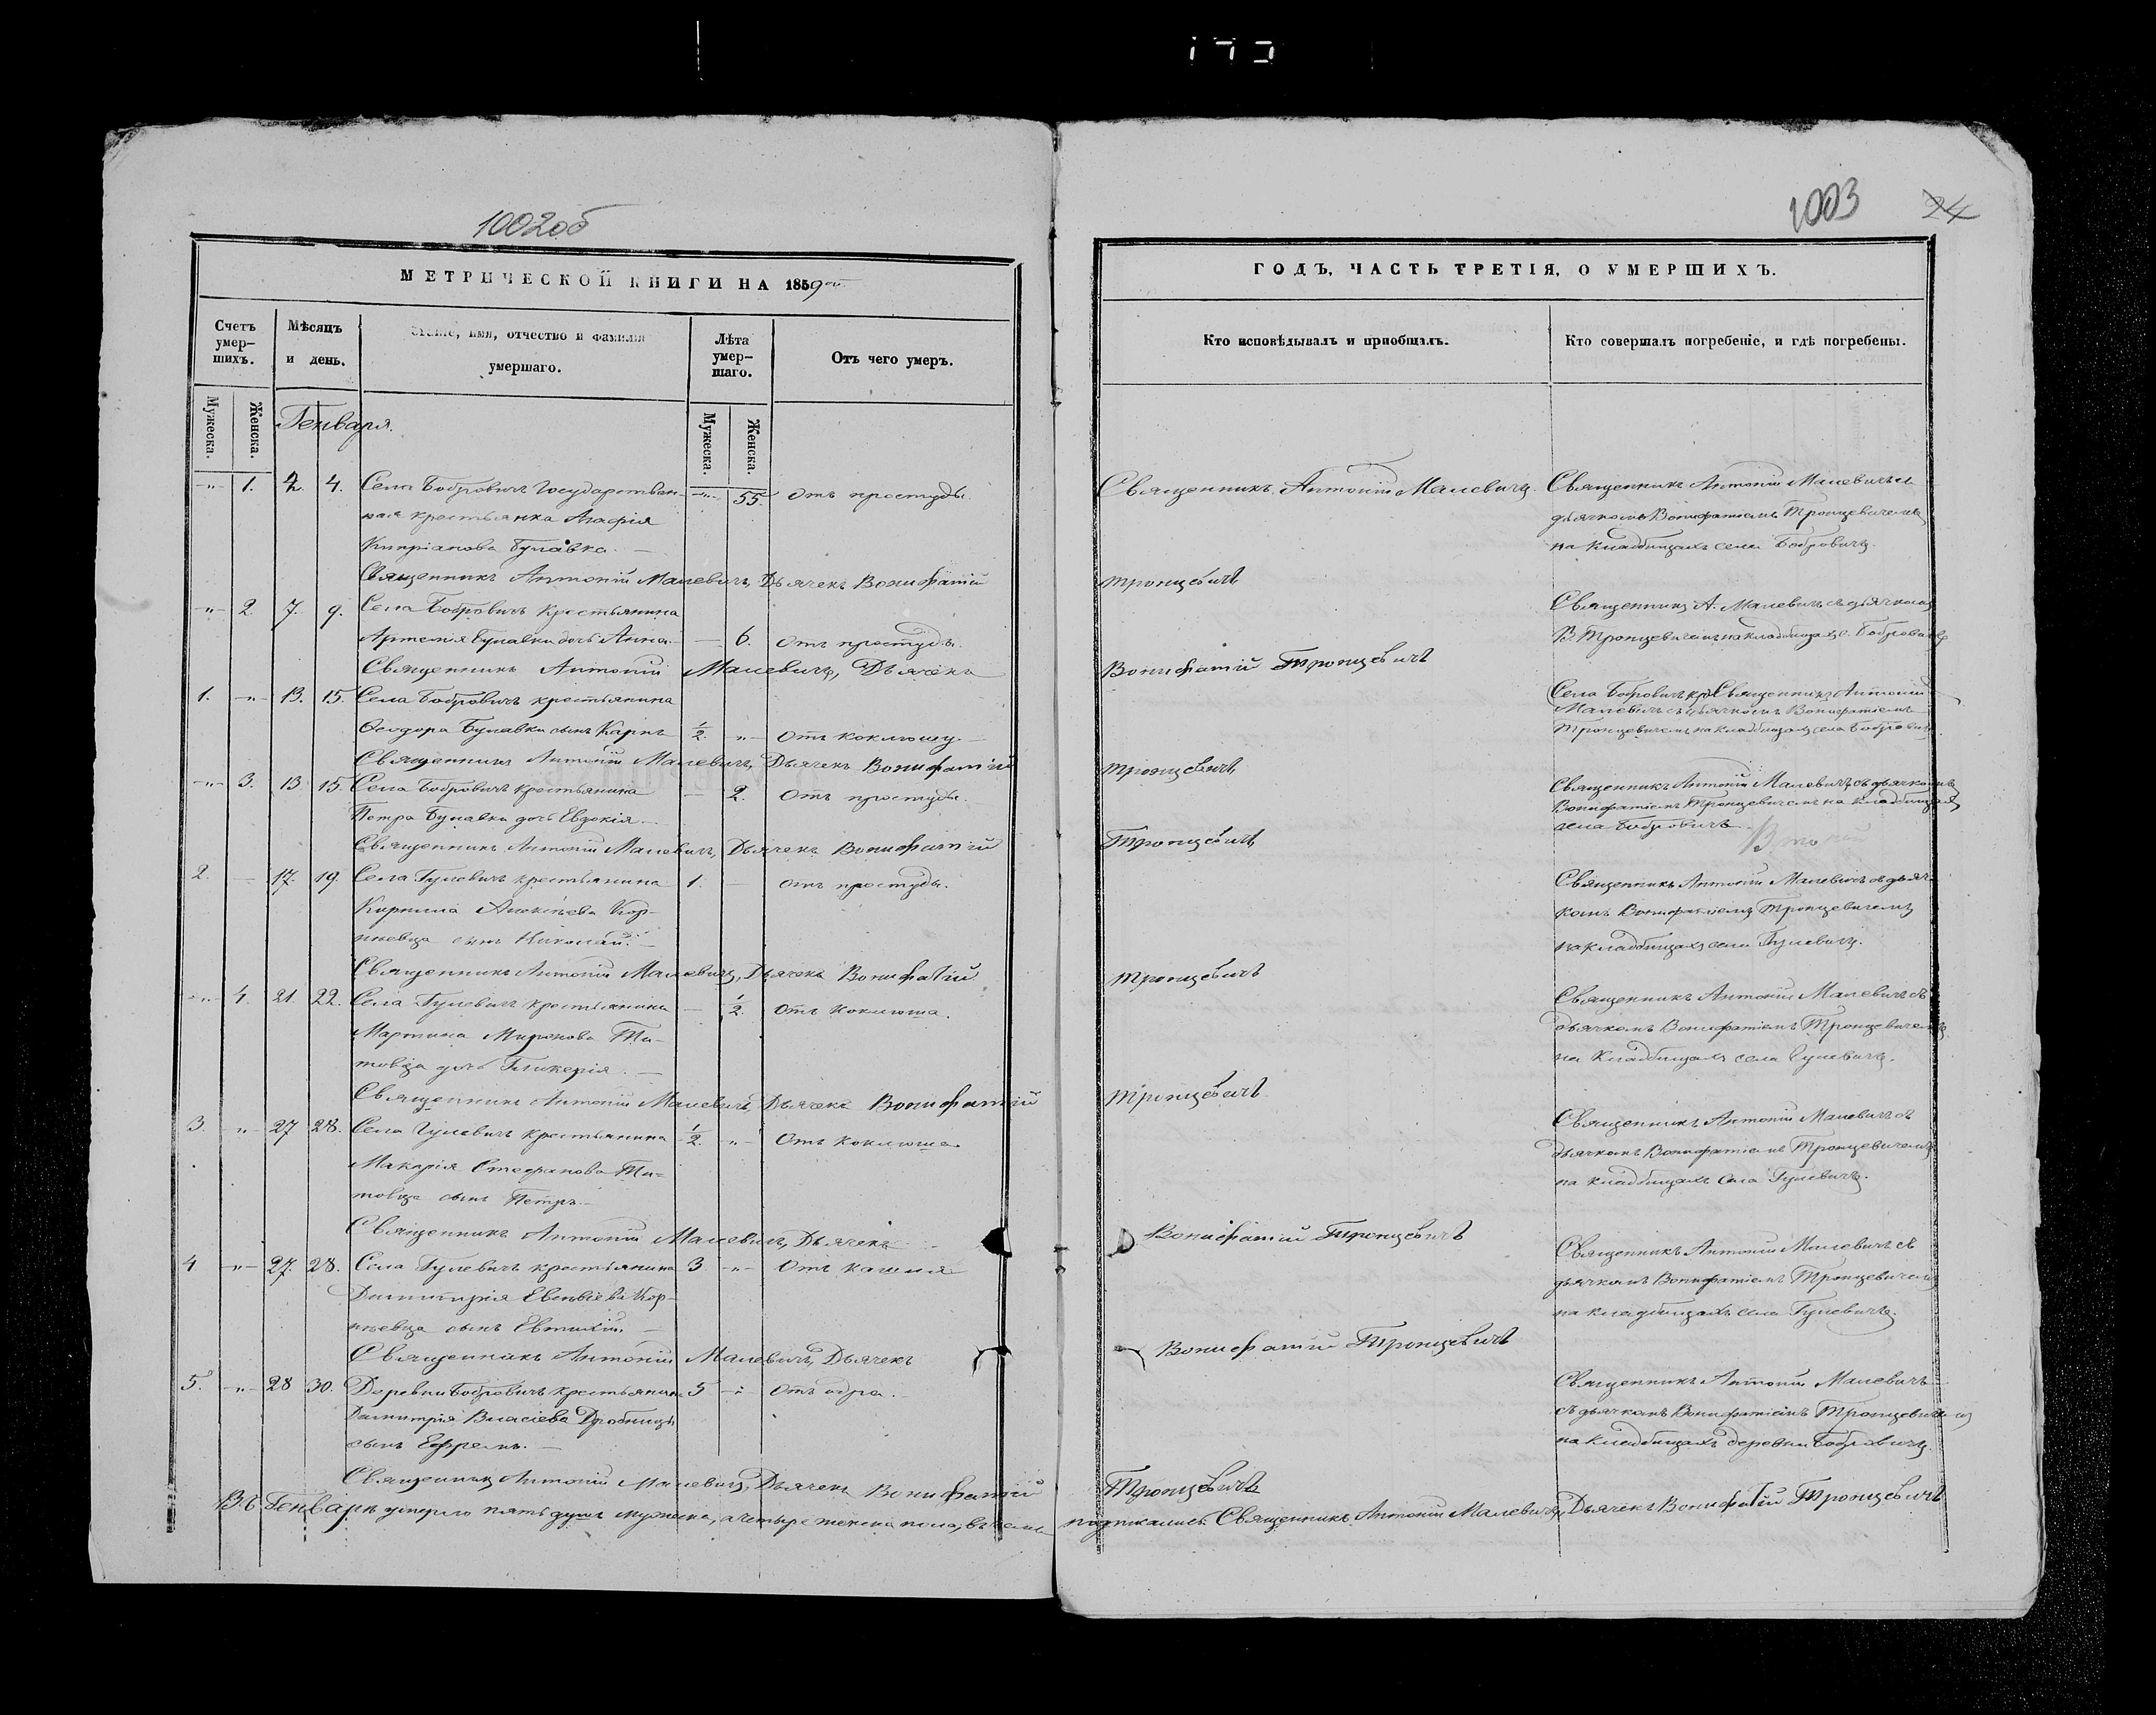 1002об
МЕТРИЧЕСКОЙ КНИГИ НА 1859 ой
Счетъ умер-шихъ.
Мѣсяцъ и день.
Званіе, имя, отчество и фамилія умершаго.
Лѣта умер-шаго.
Отъ чего умеръ.
Мужеска.
Женска.
Мужеска.
Женска.
Генваря.
-"- 1. 2. 4. Села Бобровичъ Государствен- -"- 55. Отъ простуды.
ная крестьянка Агафія
Кипріанова Булавка. —
Священникъ Антоній Малевичъ, Дьячекъ Вонифатій
-"- 2 7. 9. Села Бобровичъ крестьянина
Артемія Булавки дочь Анна. — 6. Отъ простуды.
Священникъ Антоній Малевичъ, Дьячекъ
1. -"- 13. 15. Села Бобровичъ крестьянина
Ѳеодора Булавки сынъ Карпъ 1/2. -"- Отъ коклюшу.
Священникъ Антоній Малевичъ, Дьячекъ Вонифатій
-"- 3. 13 15. Села Бобровичъ крестьянина — 2. Отъ простуды.
Петра Булавки дочь Евдокія. —
Священникъ Антоній Малевичъ, Дьячекъ Вонифатій
2. — 17. 19. Села Гулевичъ крестьянина 1. — Отъ простуды.
Кирилла Алексѣева Кор-
нѣевца сынъ Николай. —
Священникъ Антоній Малевичъ, Дьячекъ Вонифатій
-"- 4. 21. 22. Села Гулевичъ крестьянина — 1/2. Отъ коклюша.
Мартина Миронова Ти-
товца дочь Гликерія. —
Священникъ Антоній Малевичъ, Дьячекъ Вонифатій
3. -"- 27 28. Села Гулевичъ крестьянина 1/2. -"- Отъ коклюша.
Макарія Стефанова Ти-
товца сынъ Петръ. —
Священникъ Антоній Малевичъ, Дьячекъ
4 -"- 27. 28. Села Гулевичъ крестьянина 3 -"- Отъ кашля
Димитрія Кор-
нѣевца сынъ Евтихій. —
Священникъ Антоній Малевичъ, Дьячекъ
5. -"- 28 30. Деревни Бобровичъ крестьянина 5 -"- Отъ одра.
Димитрія Власіева
сынъ Ефремъ. —
Священникъ Антоній Малевичъ, Дьячекъ Вонифатій
Въ Генварѣ умерло пять душъ мужеска, а четыре женска пола, въ чемъ
1003
24
ГОДЪ, ЧАСТЬ ТРЕТІЯ, О УМЕРШИХЪ.
Кто исповѣдывалъ и пріобщалъ.
Кто совершалъ погребеніе, и гдѣ погребены.
Священникъ Антоній Малевичъ. Священникъ Антоній Малевичъ съ
дьячкомъ Вонифатіемъ Тронцевичемъ
на кладбищахъ села Бобровичъ.
Тронцевичъ
Священникъ А. Малевичъ съ дьячкомъ
В. Тронцевичемъ на кладбищахъ с. Бобровичъ
Вонифатій Тронцевичъ
Села Бобровичъ кр. Священникъ Антоній
Малевичъ съ дьячкомъ Вонифатіемъ
Тронцевичемъ на кладбищахъ села Бобровичъ
Тронцевичъ
Священникъ Антоній Малевичъ съ дьячкомъ
Вонифатіемъ Тронцевичемъ на кладбищахъ
села Бобровичъ.
Тронцевичъ
Священникъ Антоній Малевичъ съ дьяч-
комъ Вонифатіемъ Тронцевичемъ
на кладбищахъ села Гулевичъ.
Тронцевичъ
Священникъ Антоній Малевичъ съ
дьячкомъ Вонифатіемъ Тронцевичемъ
на кладбищахъ села Гулевичъ.
Тронцевичъ
Священникъ Антоній Малевичъ съ
дьячкомъ Вонифатіемъ Тронцевичемъ
на кладбищахъ села Гулевичъ.
Вонифатій Тронцевичъ
Священникъ Антоній Малевичъ съ
дьячкомъ Вонифатіемъ Тронцевичемъ
на кладбищахъ села Гулевичъ.
Вонифатій Тронцевичъ
Священникъ Антоній Малевичъ
съ дьячкомъ Вонифатіемъ Тронцевичемъ
на кладбищахъ деревни Бобровичъ
Тронцевичъ
подписались: Священникъ Антоній Малевичъ, Дьячекъ Вонифатій Тронцевичъ